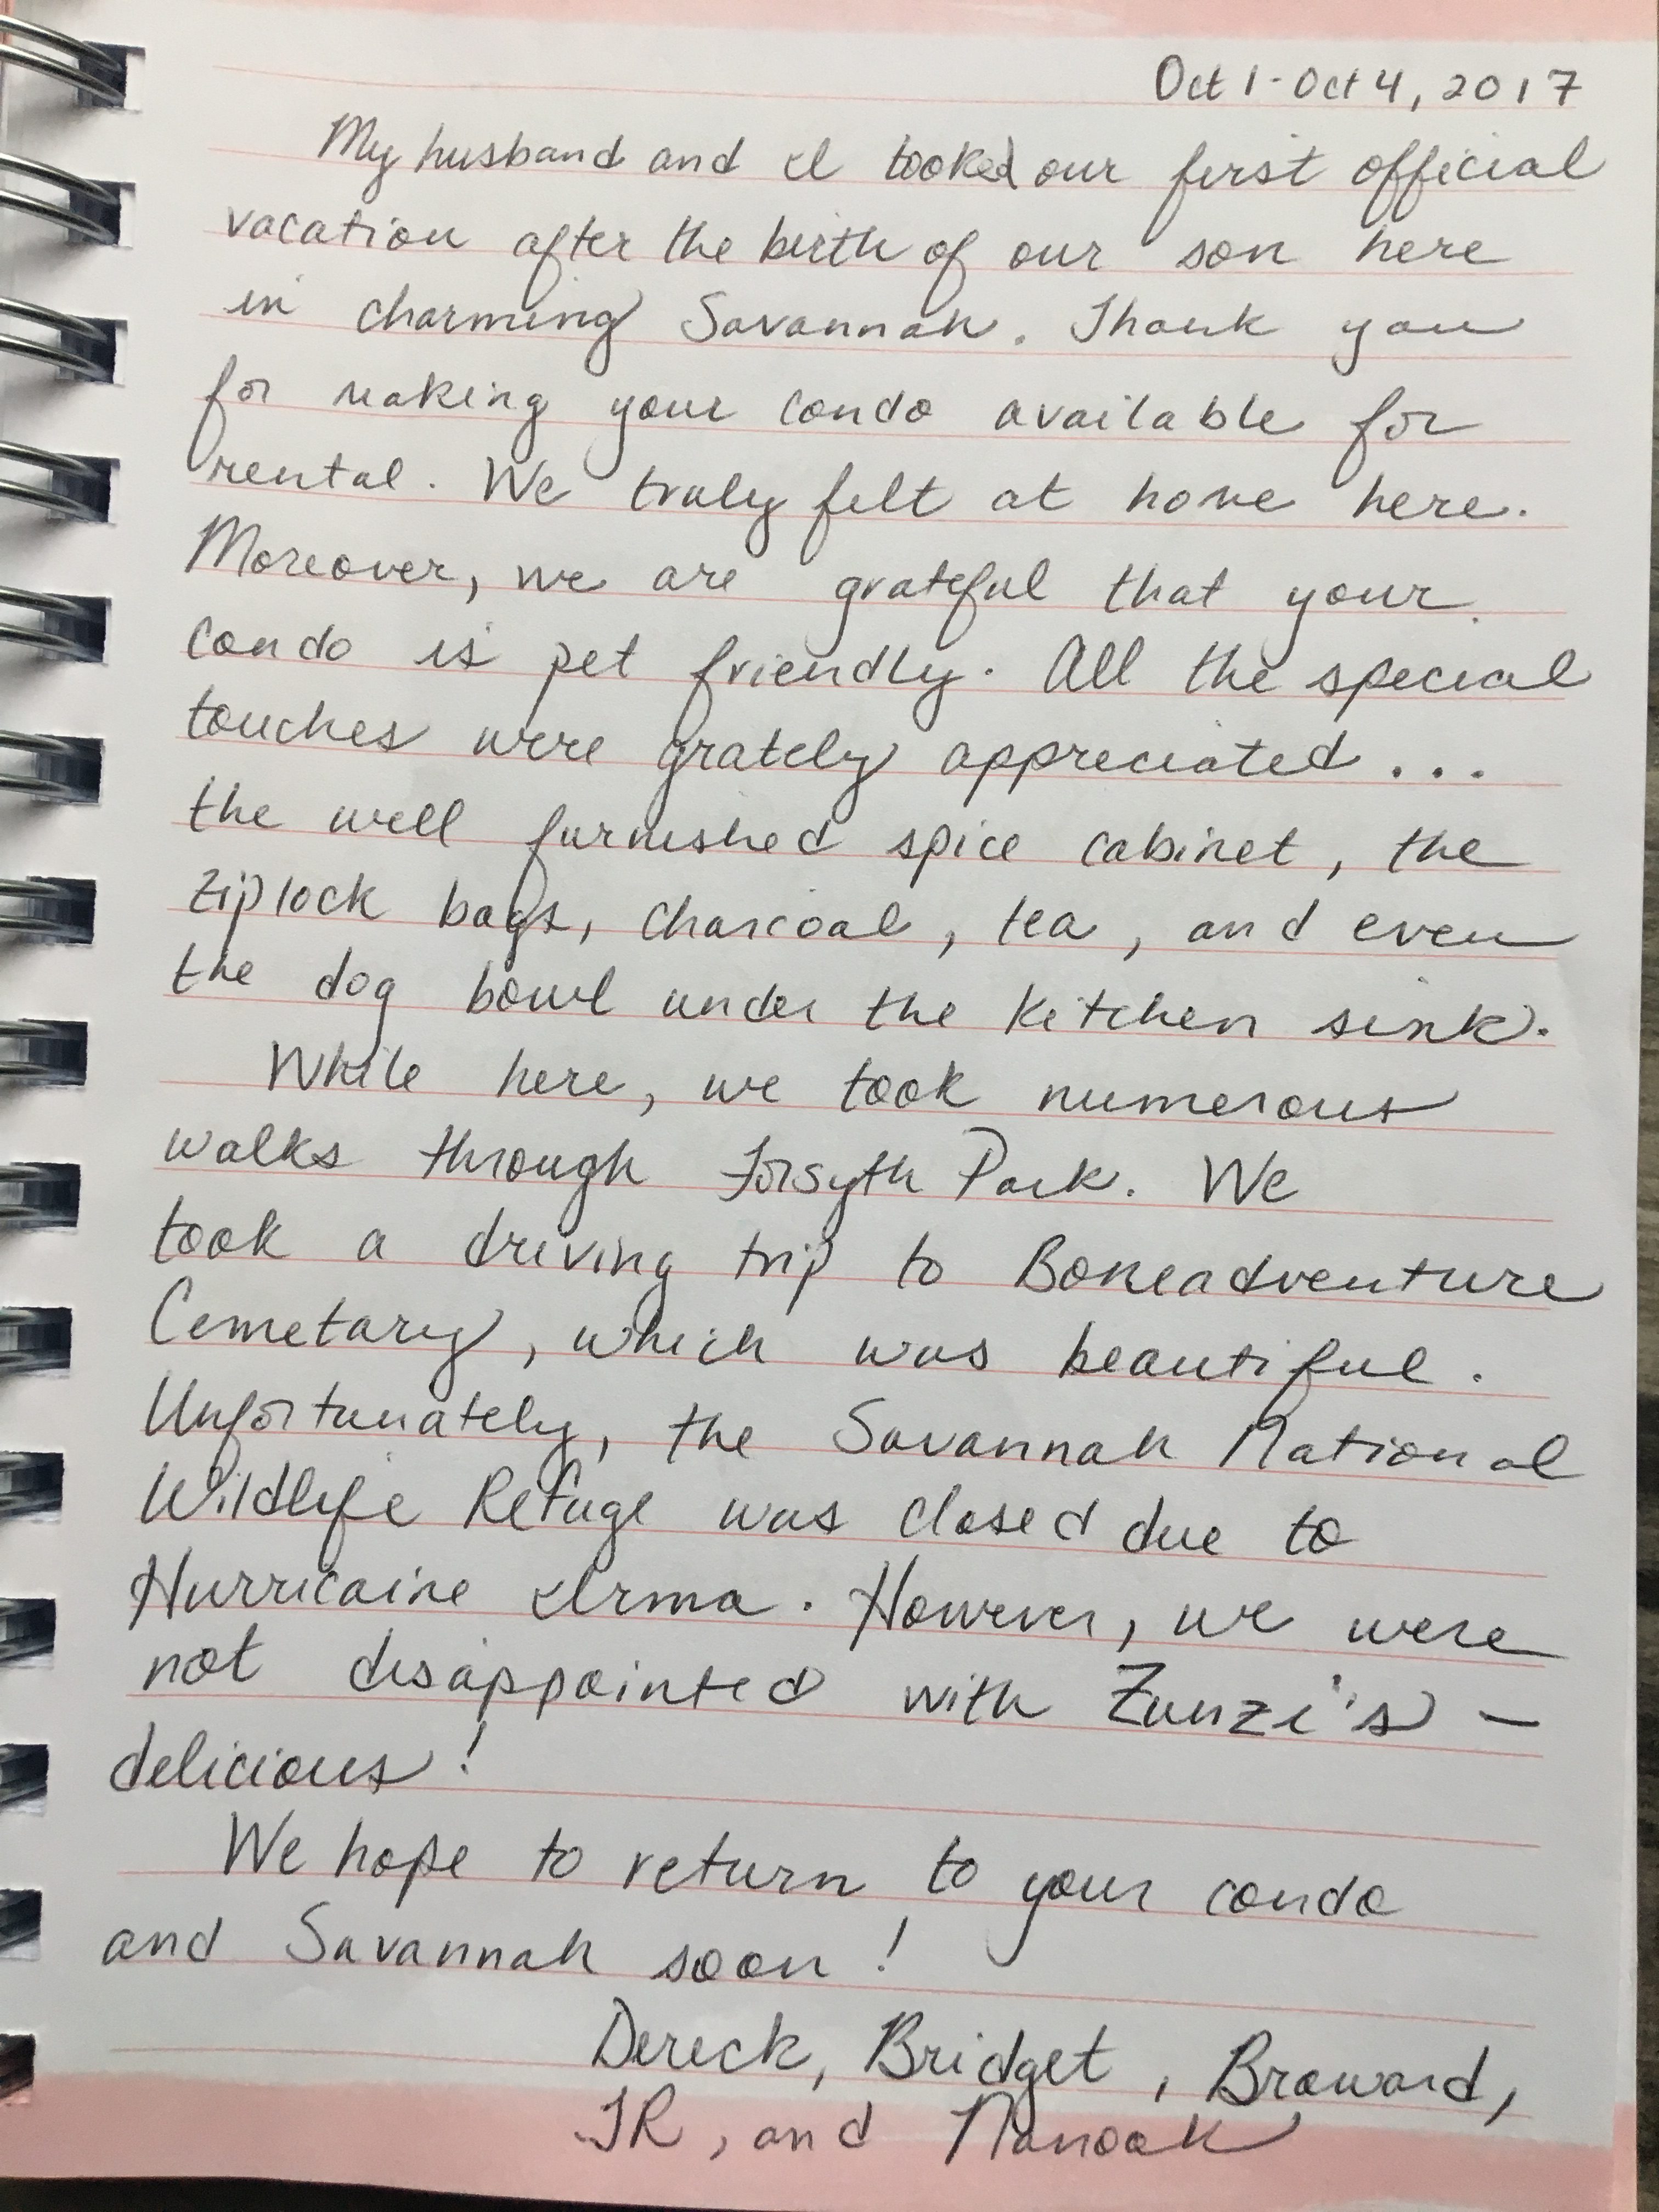 Oct 1 - Oct 4, 2017
My husband and I tooked our first official
vacation after the birth of our son here
in charming Savannah. Thank you
for making your condo available for
rental. We truly felt at home here.
Moreover, we are grateful that your
condo is pet friendly. All the special
touches were grately appreciated...
the well furnished spice cabinet, the
ziplock bags, charcoal, tea, and even
the dog bowl under the kitchen sink.
While here, we took numerous
walks through Forsyth Park. We
took a driving trip to Boneadventure
Cemetary, which was beautiful.
Unfortunately, the Savannah National
Wildlife Refuge was closed due to
Hurricaine Irma. However, we were
not disappointed with Zunzi's -
delicious!
We hope to return to your condo
and Savannah soon!
Dereck, Bridget, Broward,
JR, and Nanook